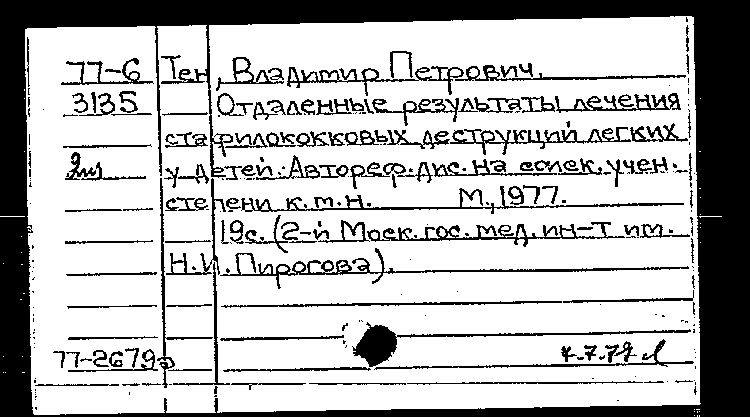 77-6 Тен, Владимир Петрович.
3135 Отдаленные результаты лечения
стафилококковых деструкций легких
у детей. Автореф. дис. на соиск. учен.
степени к.т.н. М., 1977.
19с. (2-й Моск. гос. мед. ин-т им.
Н.И. Пирогова).
77-2679а